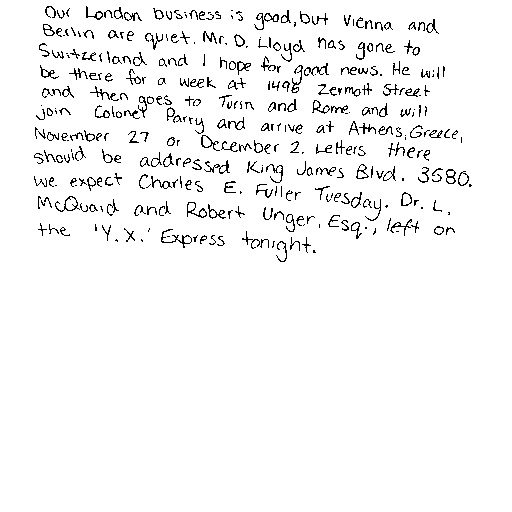 Our London business is good, but Vienna and
Berlin are quiet. Mr. D. Lloyd has gone to
Switzerland and I hope for good news. He will
be there for a week at 1496 Zermott Street
and then goes to Turin and Rome and will
join Colonel Parry and arrive at Athens, Greece,
November 27 or December 2. Letters there
should be addressed King James Blvd. 3580.
We expect Charles E. Fuller Tuesday. Dr. L.
McQuaid and Robert Unger, Esq., left on
the 'Y.X.' Express tonight.